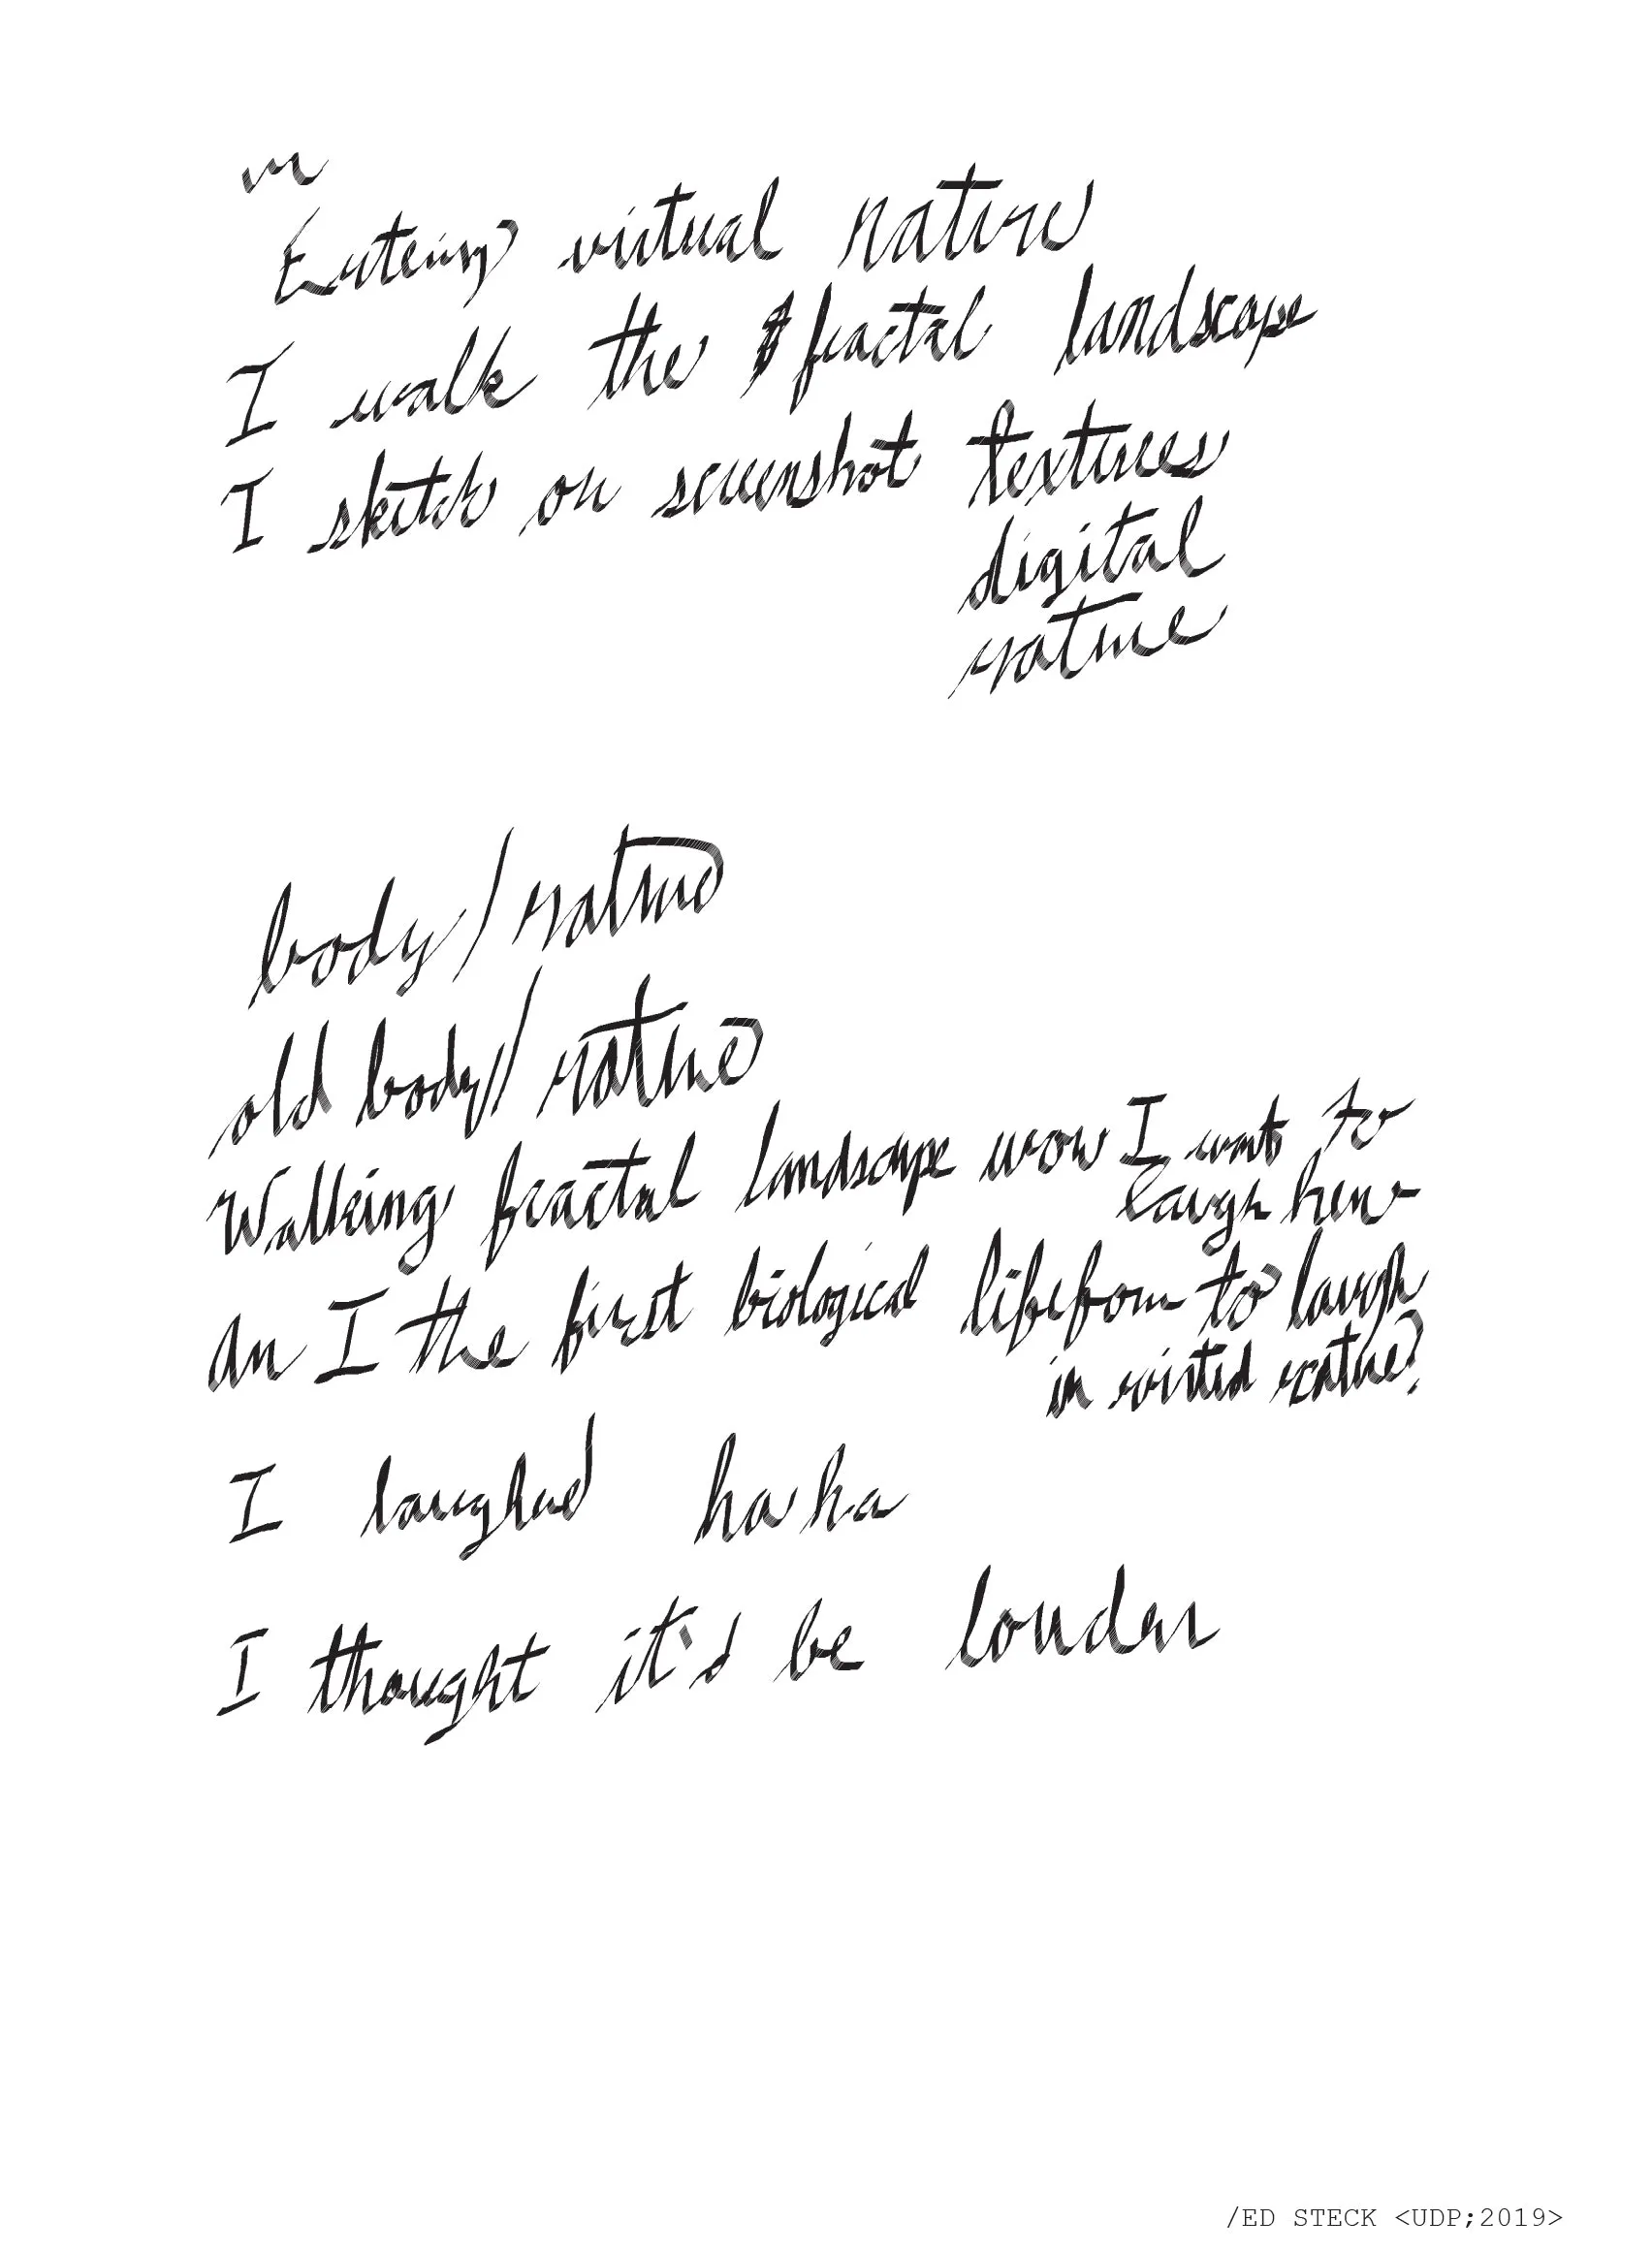 Entering virtual nature
I walk the fractal landscape
I sketch on screenshot textures
digital
nature
body/nature
old body/nature
Walking fractal landscape wow I want to
laugh here
am I the first biological lifeform to laugh
in virtual nature?
I laughed ha ha
I thought it'd be louder
/ED STECK <UDP;2019>